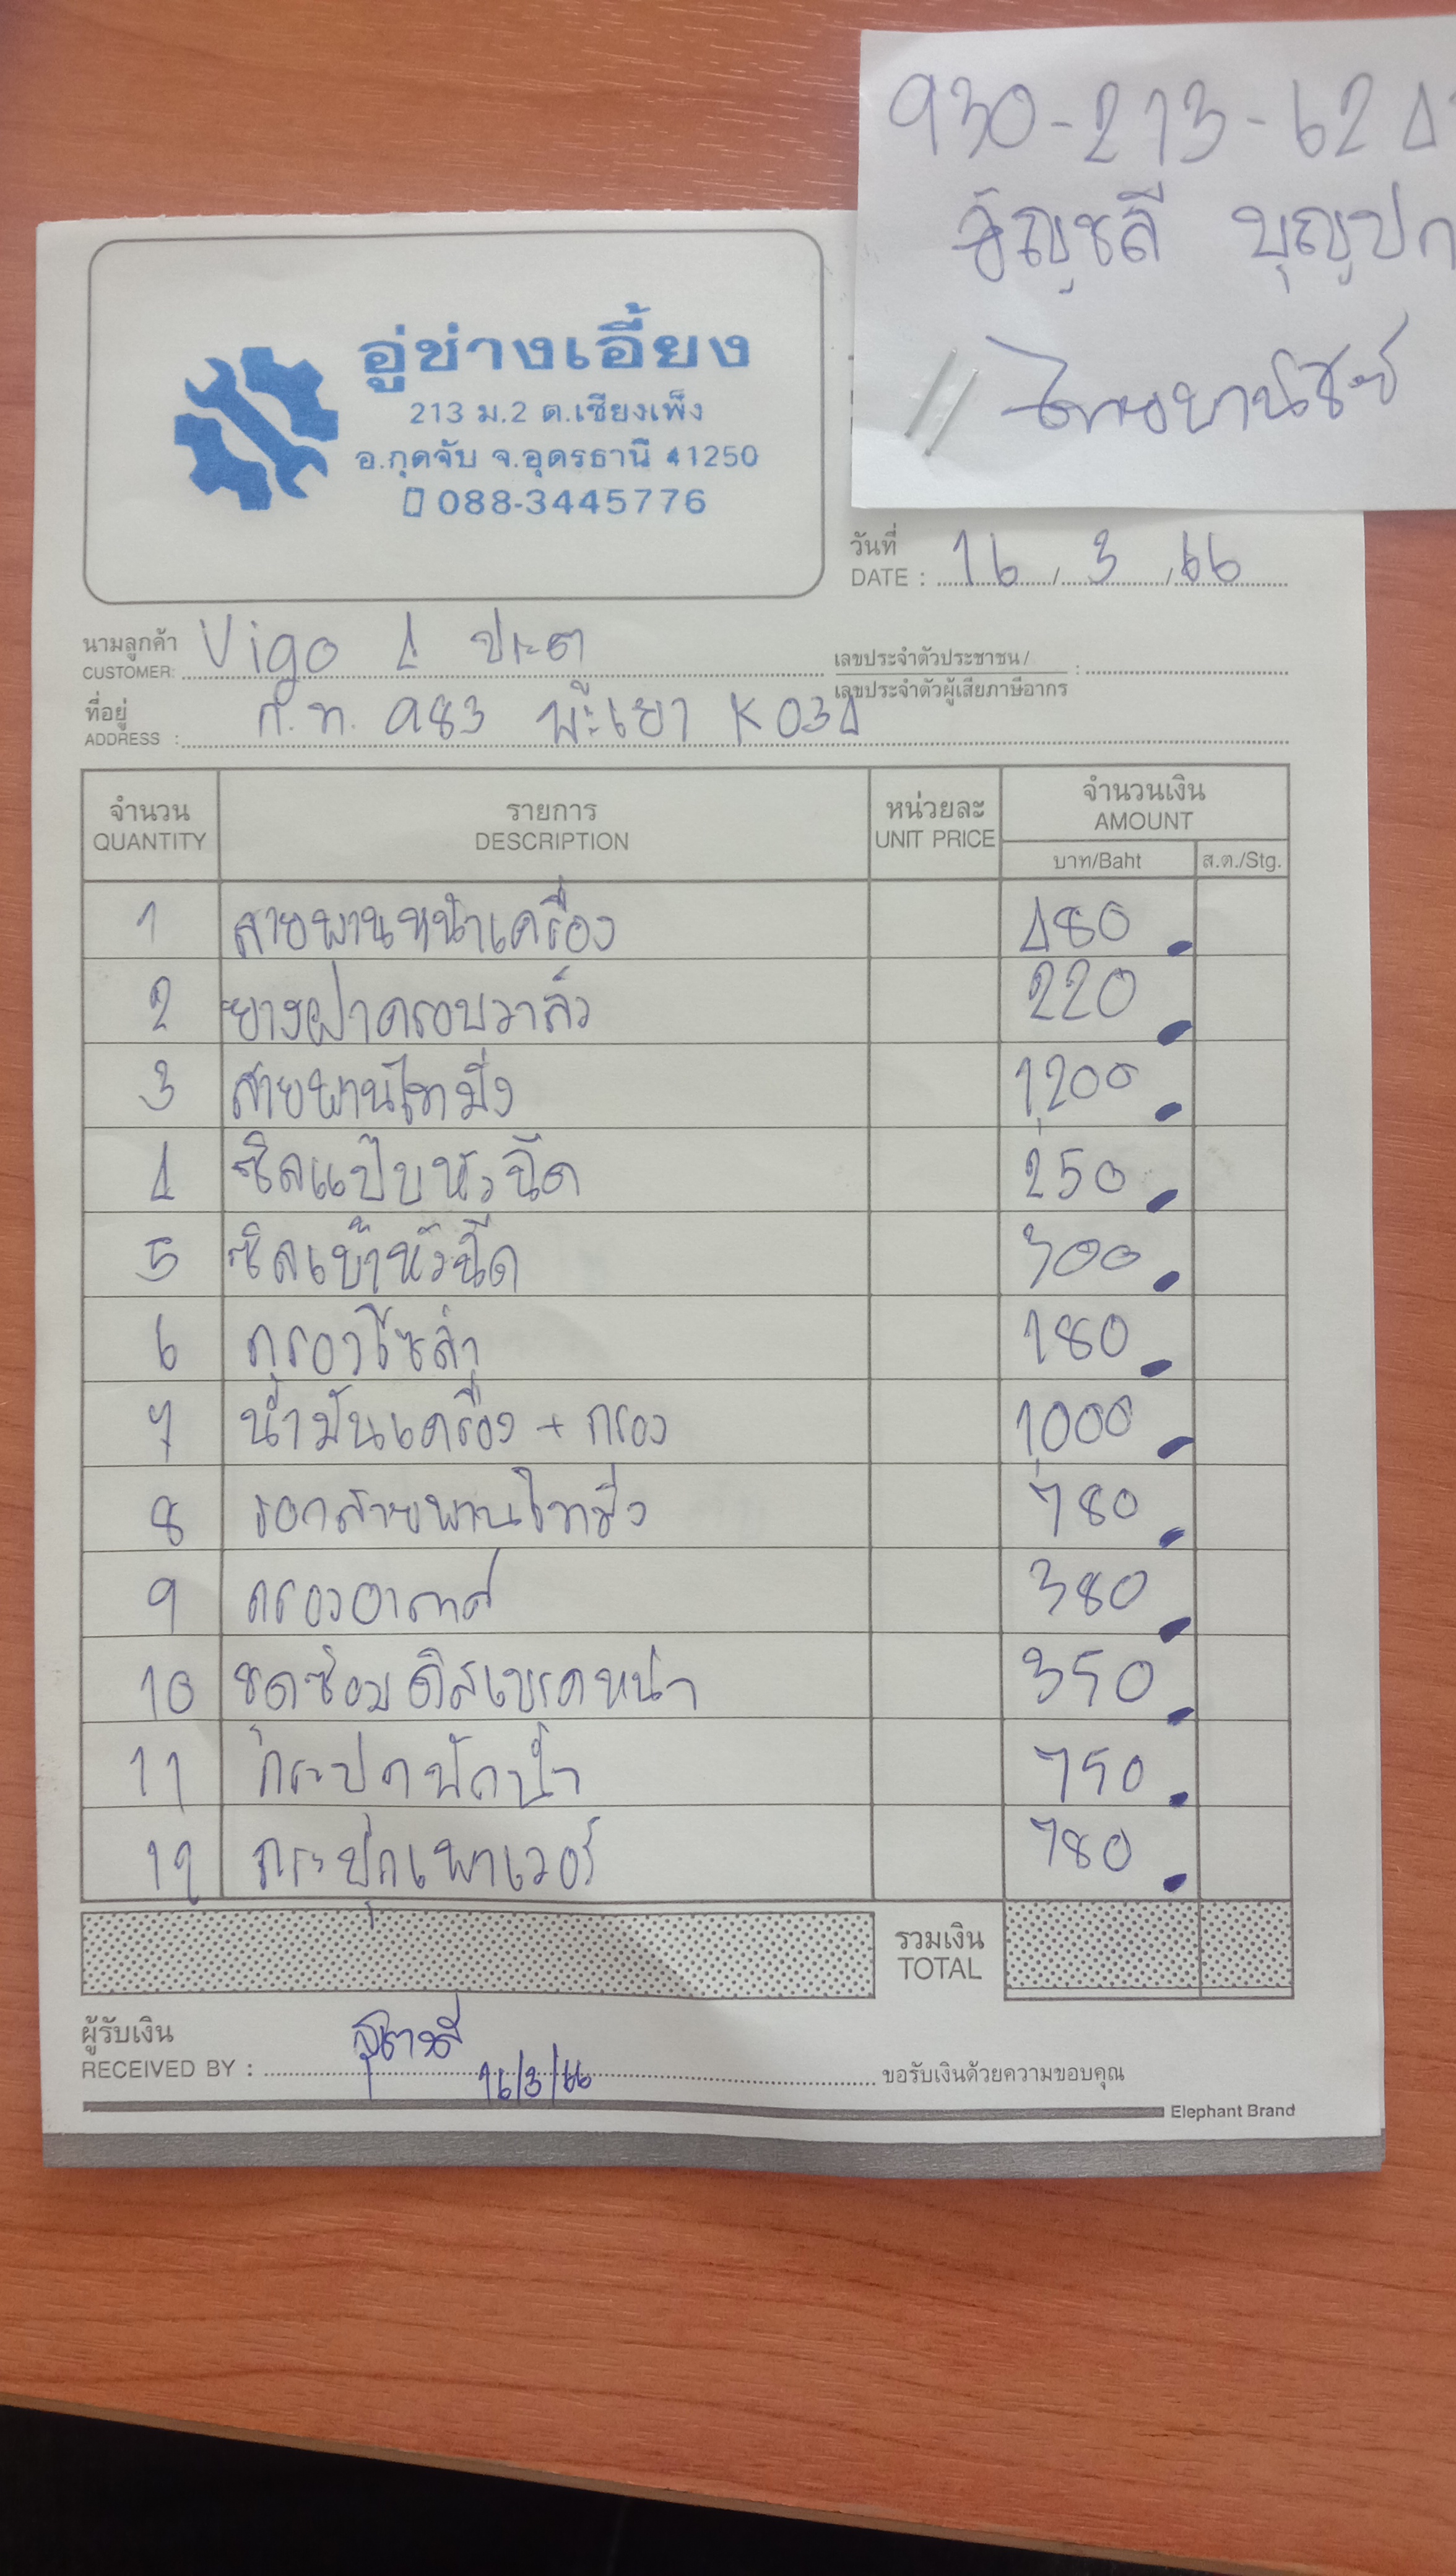 930-213-624
อัญชลี บุญปก
ไทยพานิชย์
อู่ช่างเอี้ยง
213 ม.2 ต.เชียงเพ็ง
อ.กุดจับ จ.อุดรธานี 41250
088-3445776
วันที่
DATE : 16 / 3 / 66
นามลูกค้า
CUSTOMER: Vigo 4 ประตู
เลขประจำตัวประชาชน /
เลขประจำตัวผู้เสียภาษีอากร :
ที่อยู่
ADDRESS : ก.ท. 983 พะเยา K034
จำนวน รายการ หน่วยละ จำนวนเงิน
QUANTITY DESCRIPTION UNIT PRICE AMOUNT
บาท/Baht ส.ต./Stg.
1 สายพานหน้าเครื่อง 480
2 ยางฝาครอบวาล์ว 220
3 สายพานไทมิ่ง 1,200
4 ซิลแป๊บหัวฉีด 250
5 ซิลเบ้าหัวฉีด 300
6 กรองโซล่า 180
7 น้ำมันเครื่อง + กรอง 1,000
8 รอกสายพานไทมิ่ง 780
9 กรองอากาศ 380
10 ชุดซ่อมดิสเบรคหน้า 350
11 กระปุกพักน้ำ 750
12 กระปุกเพาเวอร์ 780
รวมเงิน
TOTAL
ผู้รับเงิน
RECEIVED BY : 16/3/66 ขอรับเงินด้วยความขอบคุณ
Elephant Brand